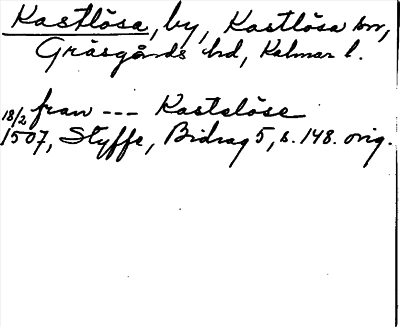 Kastlösa, by, Kastlösa sn,
Gräsgårds hd, Kalmar l.
18/2 fran --- Kastslöse
1507, Styffe, Bidrag 5, s. 148. orig.